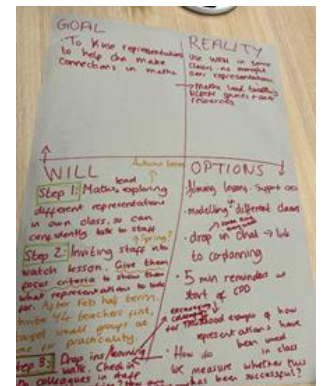 GOAL
• To use representations
to help chn make
connections in maths.
REALITY
Use WRM in some
classes - no oversight
over representations
→ Maths lead
games +
resources
WILL
Autumn term
Step 1: Maths lead exploring
different representations
in own class, so can
confidently talk to staff
Spring?
Step 2: Inviting staff into
watch lesson. Give them
focus criteria to show them
what representations to look
for. After Feb half term.
teachers first,
target small groups at
for practicality.
Step 3: Drop ins/learning
walk. Check in
to colleagues in staff
OPTIONS
filming lessons. Support
• modelling different classes
• drop in chat → link
to coplanning
• 5 min reminders at
start of CPD
encouraging
colleagues
good example of how
representations have
been used
in class
• How do
we measure whether this
has been successful?